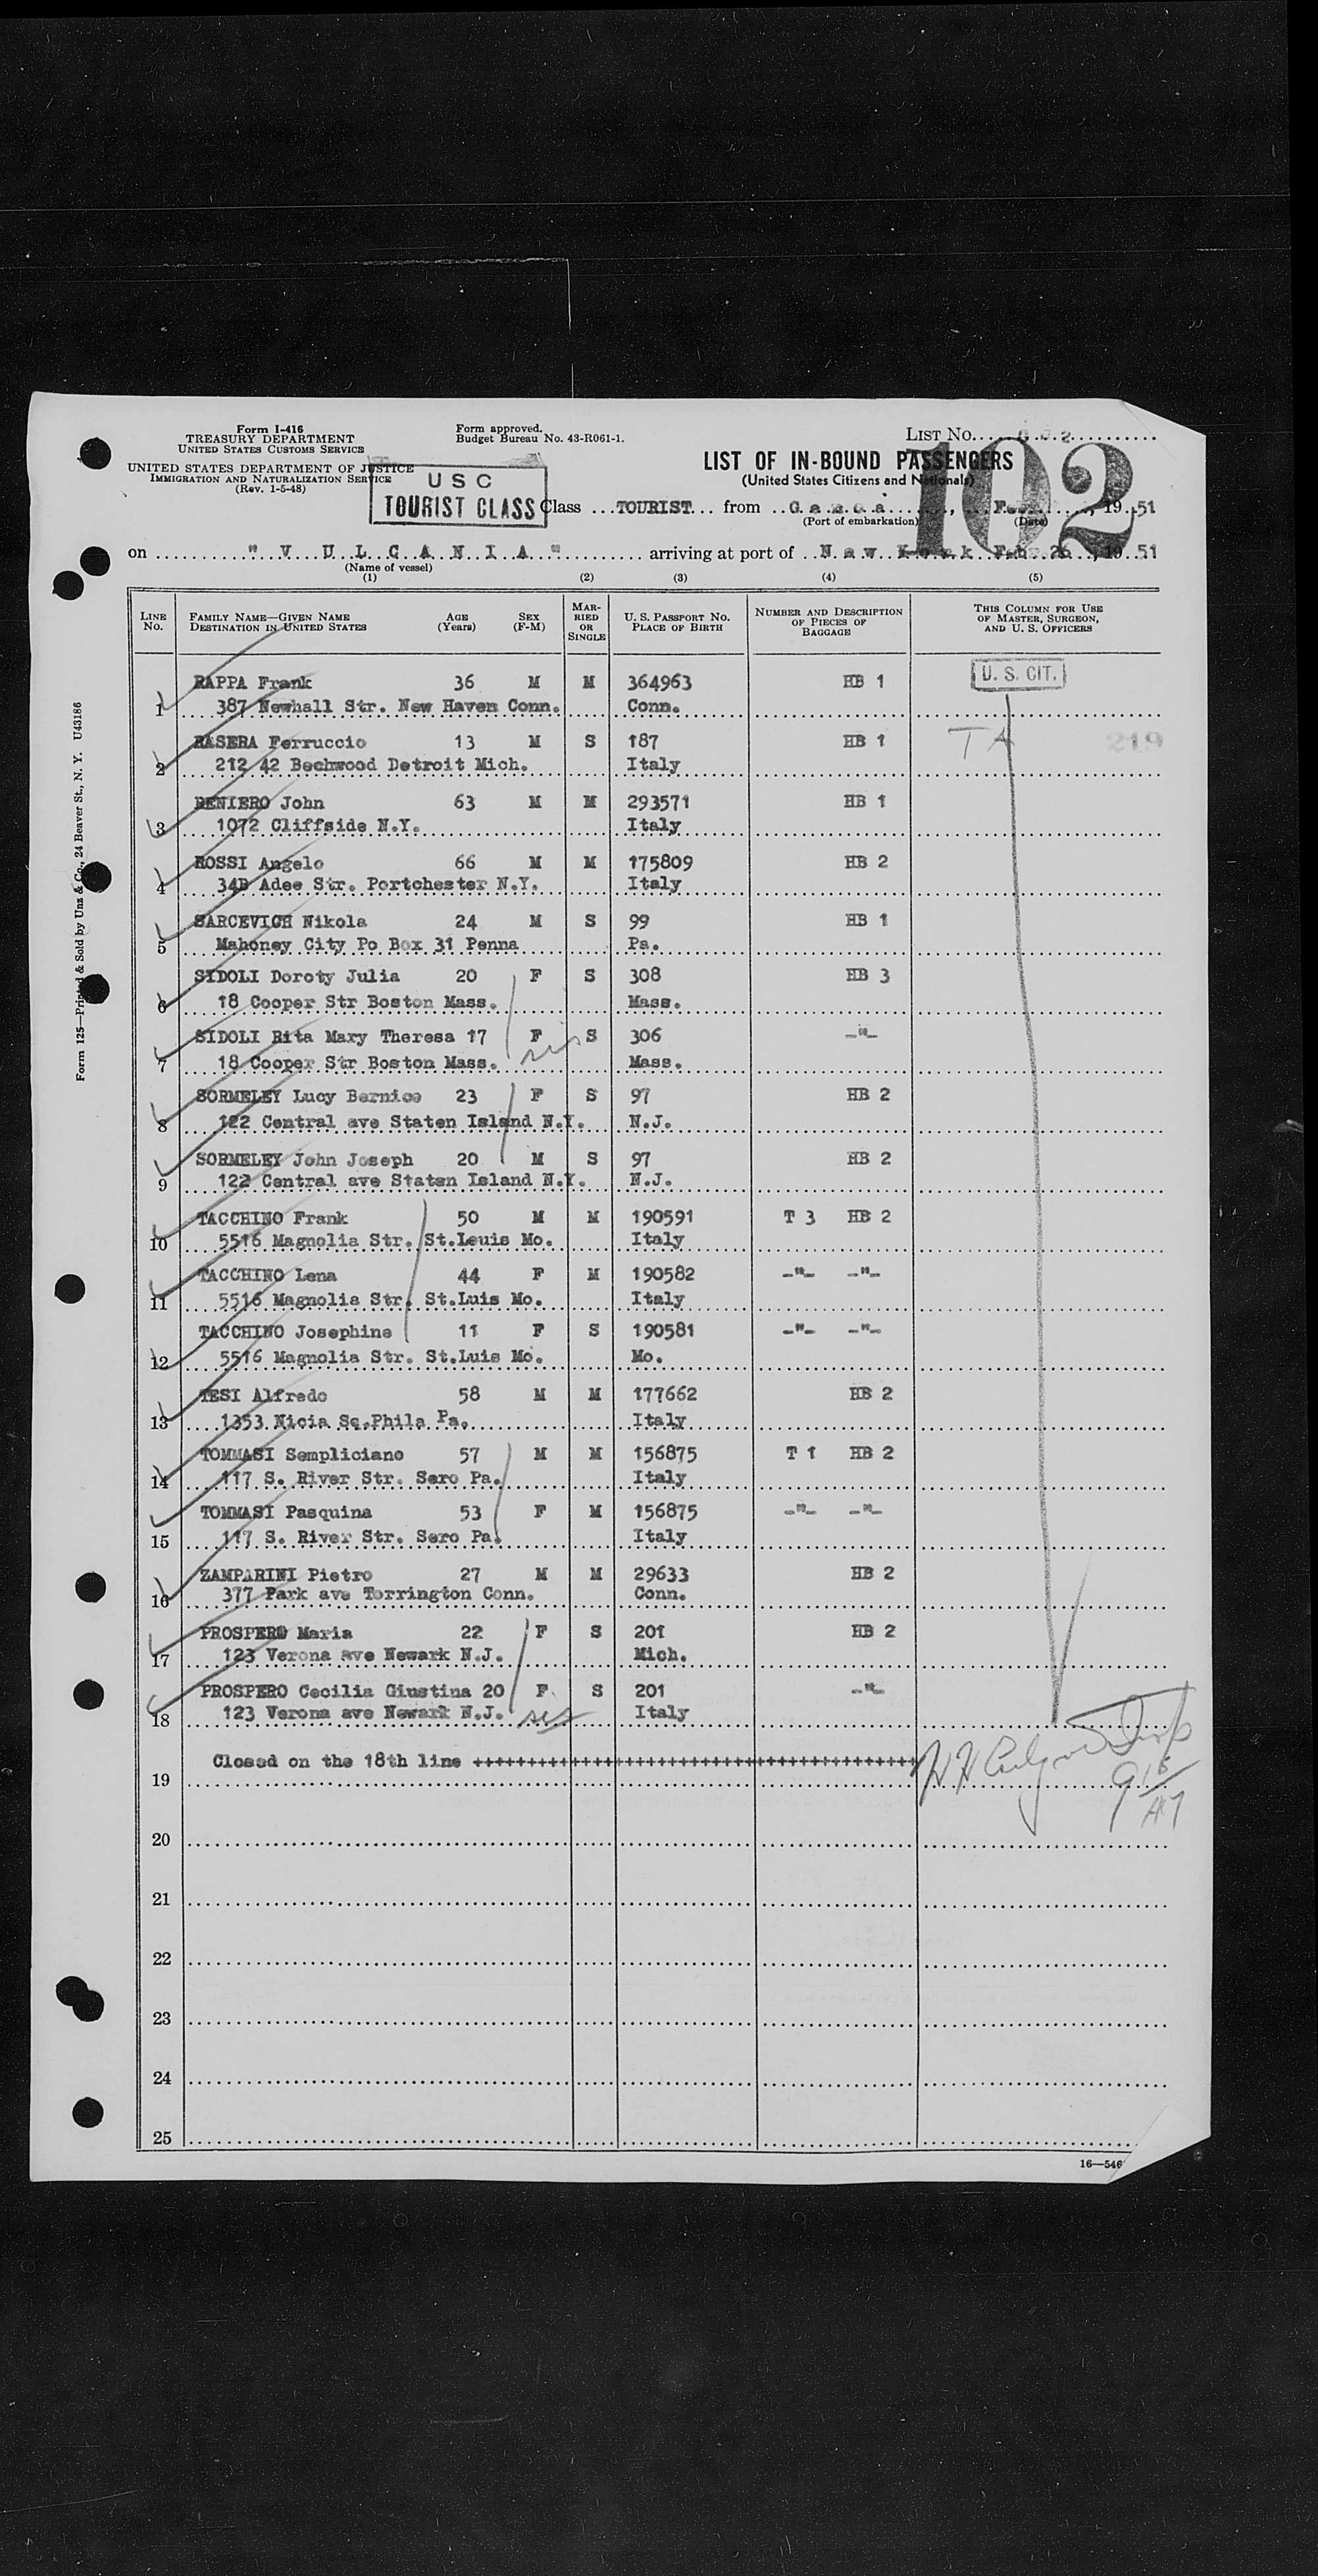 Form I-416
TREASURY DEPARTMENT
UNITED STATES CUSTOMS SERVICE
UNITED STATES DEPARTMENT OF JUSTICE
IMMIGRATION AND NATURALIZATION SERVICE
(Rev. 1-5-48)
Form approved.
Budget Bureau No. 43-R061-1.
USC
TOURIST CLASS
LIST No.
102
LIST OF IN-BOUND PASSENGERS
(United States Citizens and Nationals)
Class TOURIST from , 19 51
(Port of embarkation) (Date)
on "VULCANIA" arriving at port of New York Feb. 26, 19 51
(Name of vessel)
(1) (2) (3) (4) (5)
LINE No. FAMILY NAME—GIVEN NAME DESTINATION IN UNITED STATES AGE (Years) SEX (F-M) MARRIED OR SINGLE U. S. PASSPORT No. PLACE OF BIRTH NUMBER AND DESCRIPTION OF PIECES OF BAGGAGE THIS COLUMN FOR USE OF MASTER, SURGEON, AND U. S. OFFICERS
U. S. CIT.
RAPPA Frank 36 M M 364963 HB 1
1 387 Newhall Str. New Haven Conn. Conn.
RASERA Ferruccio 13 M S 187 HB 1 TA 219
2 212 42 Beechwood Detroit Mich. Italy
RENIERO John 63 M M 293571 HB 1
3 1072 Cliffside N.Y. Italy
ROSSI Angelo 66 M M 175809 HB 2
4 34B Adee Str. Portchester N.Y. Italy
SARCEVICH Nikola 24 M S 99 HB 1
5 Mahoney City Po Box 31 Penna Pa.
SIDOLI Doroty Julia 20 F S 308 HB 3
6 18 Cooper Str Boston Mass. Mass.
SIDOLI Rita Mary Theresa 17 F S 306 -"-
7 18 Cooper Str Boston Mass. sis Mass.
SORMELEY Lucy Bernice 23 F S 97 HB 2
8 122 Central ave Staten Island N.Y. N.J.
SORMELEY John Joseph 20 M S 97 HB 2
9 122 Central ave Staten Island N.Y. N.J.
TACCHINO Frank 50 M M 190591 T 3 HB 2
10 5516 Magnolia Str. St.Leuis Mo. Italy
TACCHINO Lena 44 F M 190582 -"- -"-
11 5516 Magnolia Str. St.Luis Mo. Italy
TACCHINO Josephine 11 F S 190581 -"- -"-
12 5516 Magnolia Str. St.Luis Mo. Mo.
TESI Alfredo 58 M M 177662 HB 2
13 1353 Nicia Sq.Phila Pa. Italy
TOMMASI Sempliciano 57 M M 156875 T 1 HB 2
14 117 S. River Str. Sero Pa. Italy
TOMMASI Pasquina 53 F M 156875 -"- -"-
15 117 S. River Str. Sero Pa. Italy
ZAMPARINI Pietro 27 M M 29633 HB 2
16 377 Park ave Torrington Conn. Conn.
PROSPERO Maria 22 F S 201 HB 2
17 123 Verona ave Newark N.J. Mich.
PROSPERO Cecilia Giustina 20 F S 201 -"-
18 123 Verona ave Newark N.J. sis Italy
Closed on the 18th line ++++++++++++++++++++++++++++++++++++++++
19
20
21
22
23
24
25
16—546
Form 125—Printed & Sold by Unz & Co., 24 Beaver St., N. Y. U43186